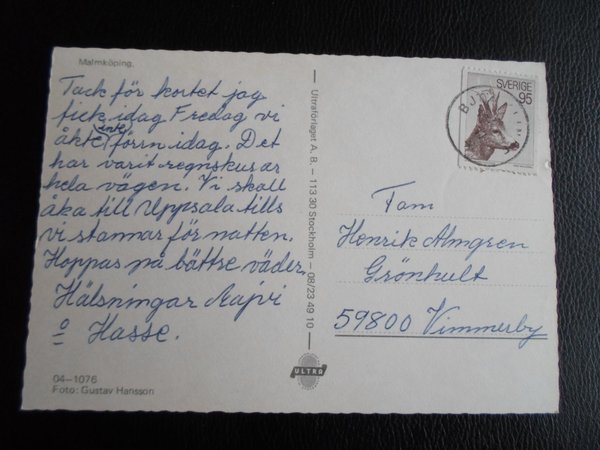 Malmköping.
Tack för kortet jag
fick idag Fredag vi
åkte inte förrn idag. Det
har varit regnskurar
hela vägen. Vi skall
åka till Uppsala tills
vi stannar för natten.
Hoppas på bättre väder.
Hälsningar Aajvi
o Hasse.
04–1076
Foto: Gustav Hansson
Ultraförlaget A. B. – 113 30 Stockholm – 08/23 49 10
ULTRA
SVERIGE
95
Fam
Henrik Almgren
Grönhult
59800 Vimmerby